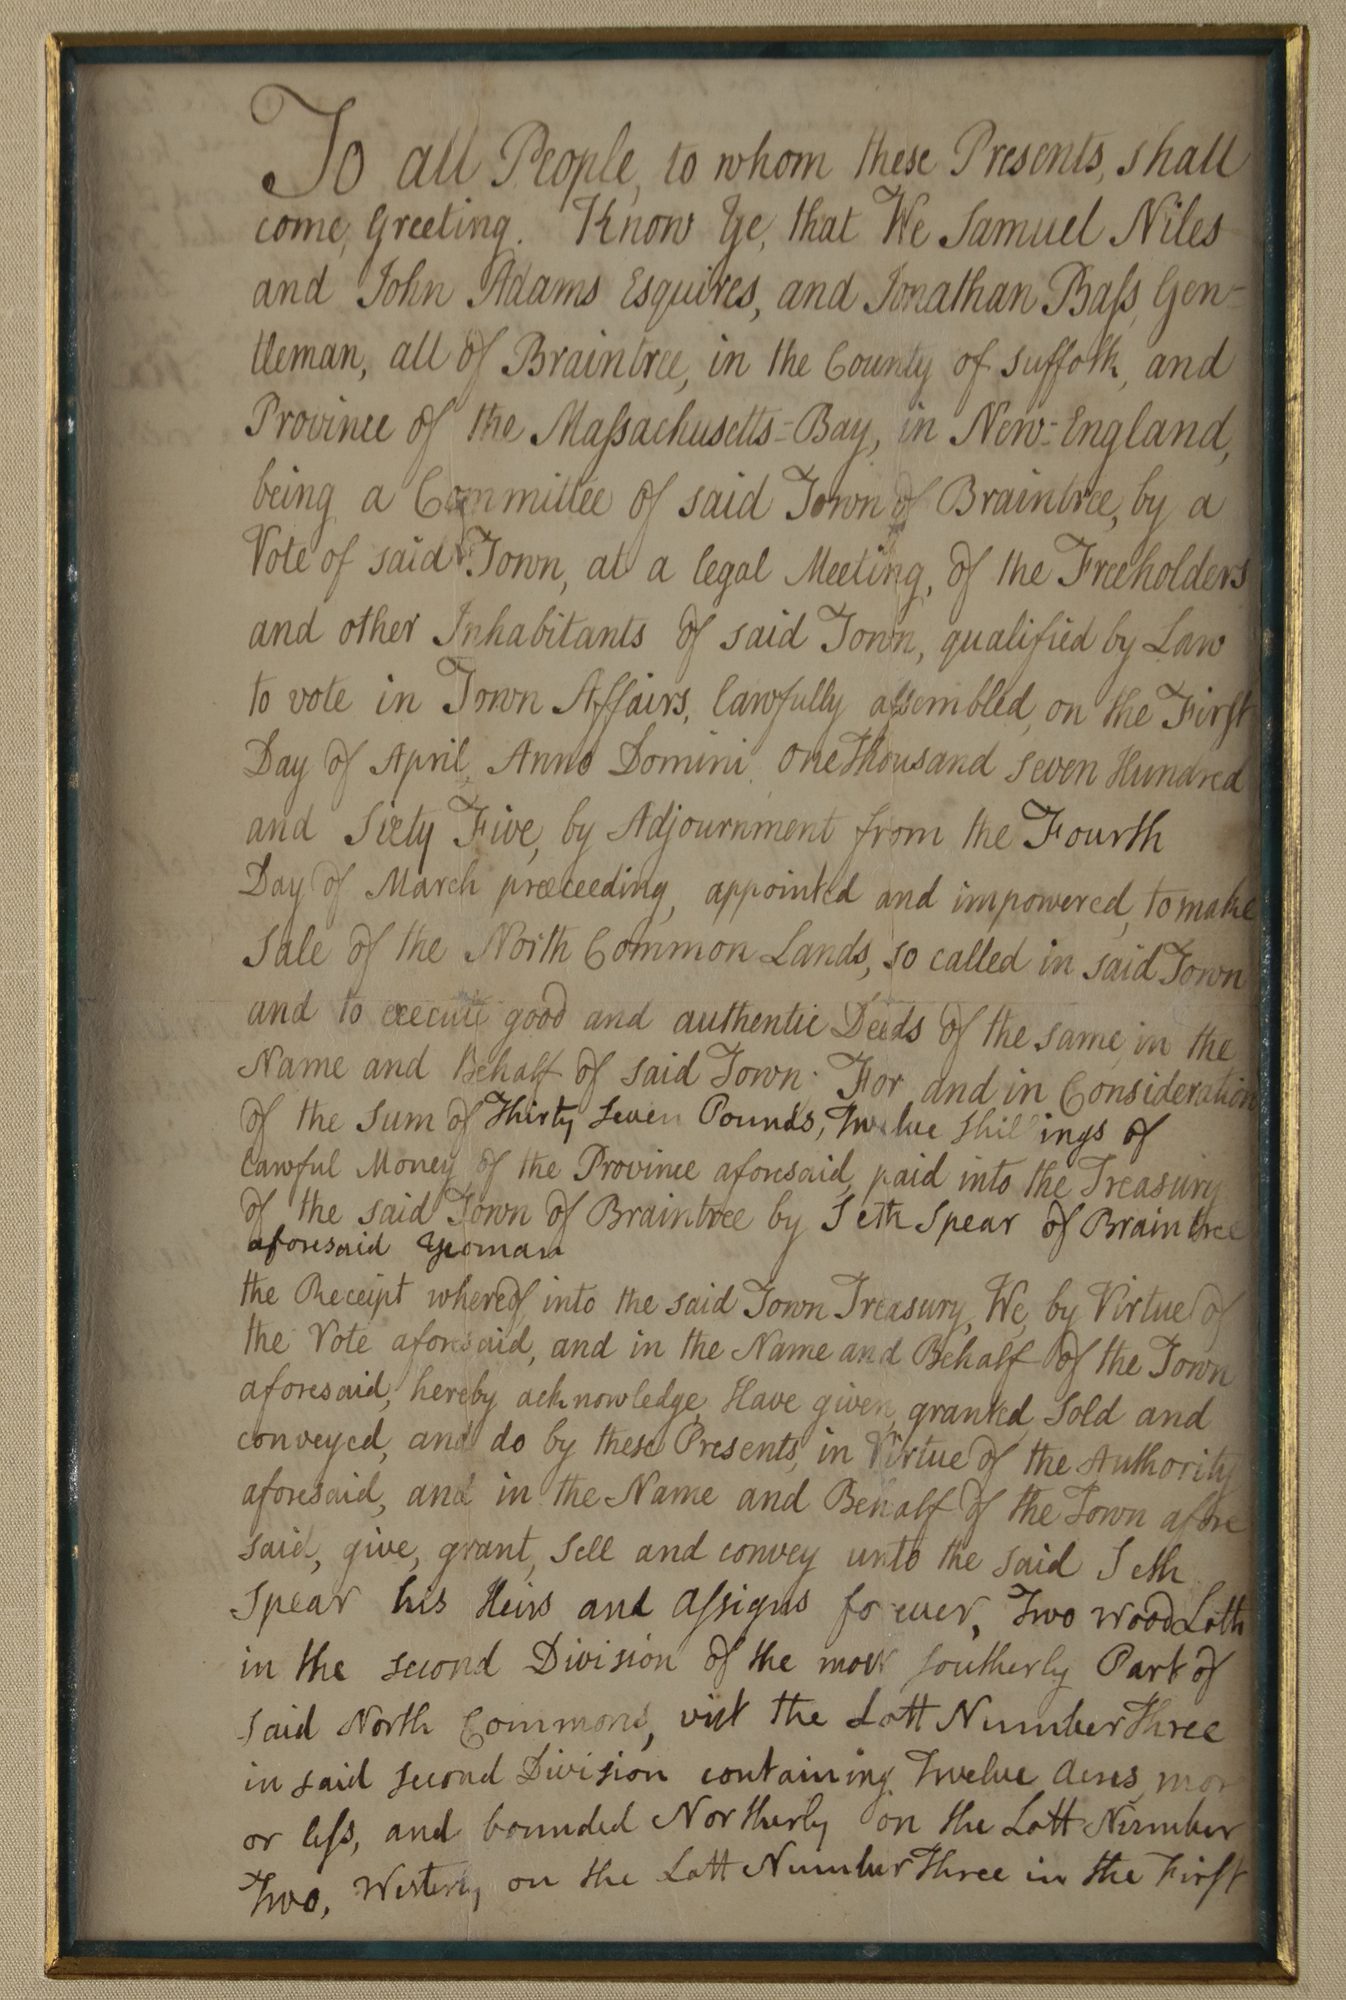 To all People, to whom these Presents, shall
come, Greeting. Know Ye, that We Samuel Niles
and John Adams Esquires, and Jonathan Baſs, Gen=
tleman, all of Braintree, in the County of Suffolk, and
Province of the Maſsachusetts=Bay, in New=England,
being a Committee of said Town of Braintree, by a
Vote of said Town, at a legal Meeting, of the Freeholders
and other Inhabitants of said Town, qualified by Law
to vote in Town Affairs, lawfully aſsembled, on the Firſt
Day of April, Anno Domini, one Thousand Seven Hundred
and Sixty Five, by Adjournment from the Fourth
Day of March præceeding, appointed and impowered, to make
Sale of the North Common Lands, so called in said Town
and to execute good and authentic Deeds of the same, in the
Name and Behalf of said Town. For and in Consideration
of the Sum of Thirty Seven Pounds, Twelve Shillings of
lawful Money of the Province aforesaid, paid into the Treasury
of the said Town of Braintree by Seth Spear of Braintree
aforesaid Yeoman
the Receipt whereof, into the said Town Treasury, We, by Virtue of
the Vote aforesaid, and in the Name and Behalf of the Town
aforesaid, hereby acknowledge, Have given, granted, Sold and
conveyed, and do by these Presents, in Virtue of the Authority
aforesaid, and in the Name and Behalf of the Town afore
said, give, grant, Sell and convey unto the said Seth
Spear his Heirs and Aſsigns forever, Two Wood Lotts
in the second Division of the most southerly Part of
said North Commons, vizt the Lott Number Three
in said second Division containing Twelve Acres, more
or leſs, and bounded Northerly on the Lott Number
Two, Westerly on the Lott Number Three in the Firſt